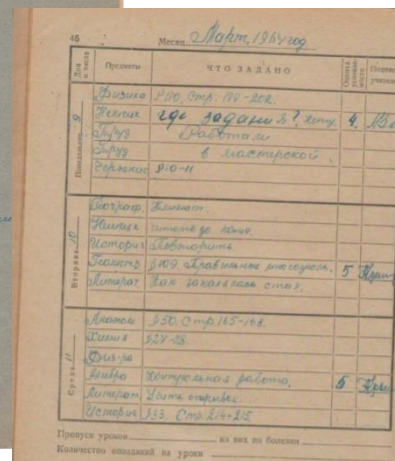 46 Месяц Март, 1964 год
Дни и числа Предметы ЧТО ЗАДАНО Оценка успеваемости Подпись учителя
Понедельник 9
Физика § 110, Стр. 199-202.
Немецк где задание? 4.
Труд Работали
Труд в мастерской.
Черчение § 10-11
Вторник 10
Географ.
Немецк читать до конца.
История Повторить.
Геометр § 109. Правильные многоугольн. 5
Литерат. Как закалялась сталь.
Среда 11
Анатом § 50. Стр 165-168.
Химия § 24-25.
Физ-ра
Алгебра Контрольная работа. 5
Литерат. Учить отрывок.
История § 33. Стр. 214-215
Пропуск уроков из них по болезни
Количество опозданий на уроки